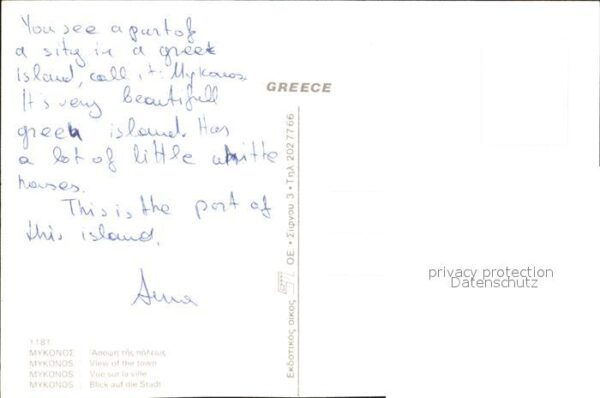 You see a part of
a sity in a greek
island, call it: Mykonos
It's very beautifull
greek island. Has
a lot of little whitte
houses.
This is the port of
this island.
Anna
GREECE
Εκδοτικός οίκος ΟΕ. • Σίφνου 3 • Τηλ 2027766
privacy protection
Datenschutz
1181
ΜΥΚΟΝΟΣ : Ἄποψη τῆς πόλεως
MYKONOS : View of the town
MYKONOS : Vue sur la ville
MYKONOS : Blick auf die Stadt